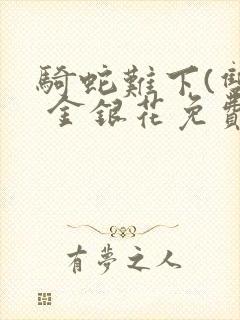 騎蛇難下(雙
金銀花免費
有夢之人